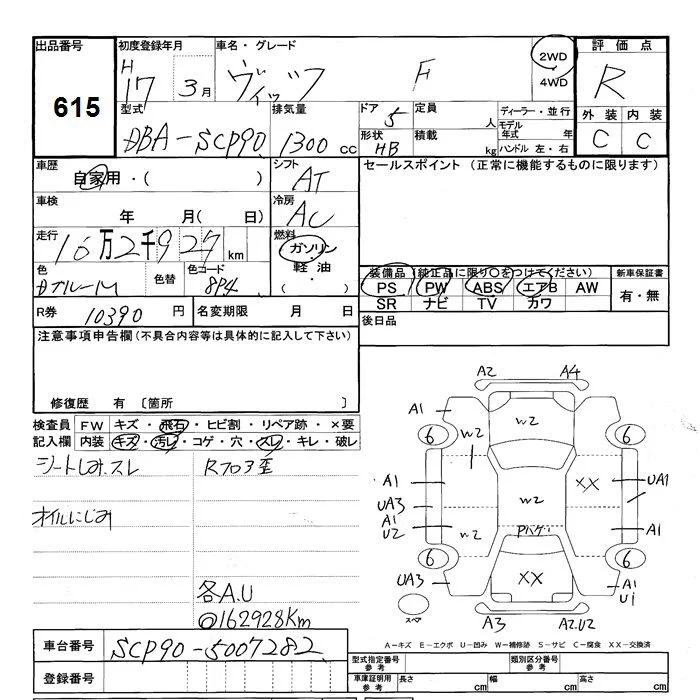 出品番号
615
初度登録年月
H 17 3月
車名・グレード
ヴィッツ F
2WD
4WD
評価点
R
外装 内装
C C
型式
DBA-SCP90
排気量
1300 cc
ドア 5
定員 人
形状 HB
積載 kg
ディーラー・並行
モデル年式 年
ハンドル 左・右
車歴
自家用・( )
シフト
AT
セールスポイント (正常に機能するものに限ります)
車検
年 月( 日)
冷房
AC
走行
16万2千927km
燃料
ガソリン
軽油
( ・ )
色
色替
色コード
8P4
装備品(純正品に限り○をつけてください)
PS PW ABS エアB AW
SR ナビ TV カワ
新車保証書
有・無
R券 10390 円
名変期限 月 日
後日品
注意事項申告欄(不具合内容等は具体的に記入して下さい)
修復歴 有 〔箇所 〕
検査員
記入欄
FW キズ・飛石・ヒビ割・リペア跡・×要
内装 キズ・汚レ・コゲ・穴・スレ・キレ・破レ
シートしみ.スレ
Rフロア歪
オイルにじみ
各A.U
@162928Km
A2 A4
A1
6 6
W2
W2
A1
UA3
A1
U2
XX
UA1
W2
W2
Pハゲ
A1
6 6
UA3
XX
A1
Ui
スペア
A3
A2.U2
車台番号
SCP90-5007282
登録番号
A-キズ E-エクボ U-凹み W-補修跡 S-サビ C-腐食 XX-交換済
型式指定番号
参考
類別区分番号
参考
車庫証明用
参考
長さ cm
幅 cm
高さ cm